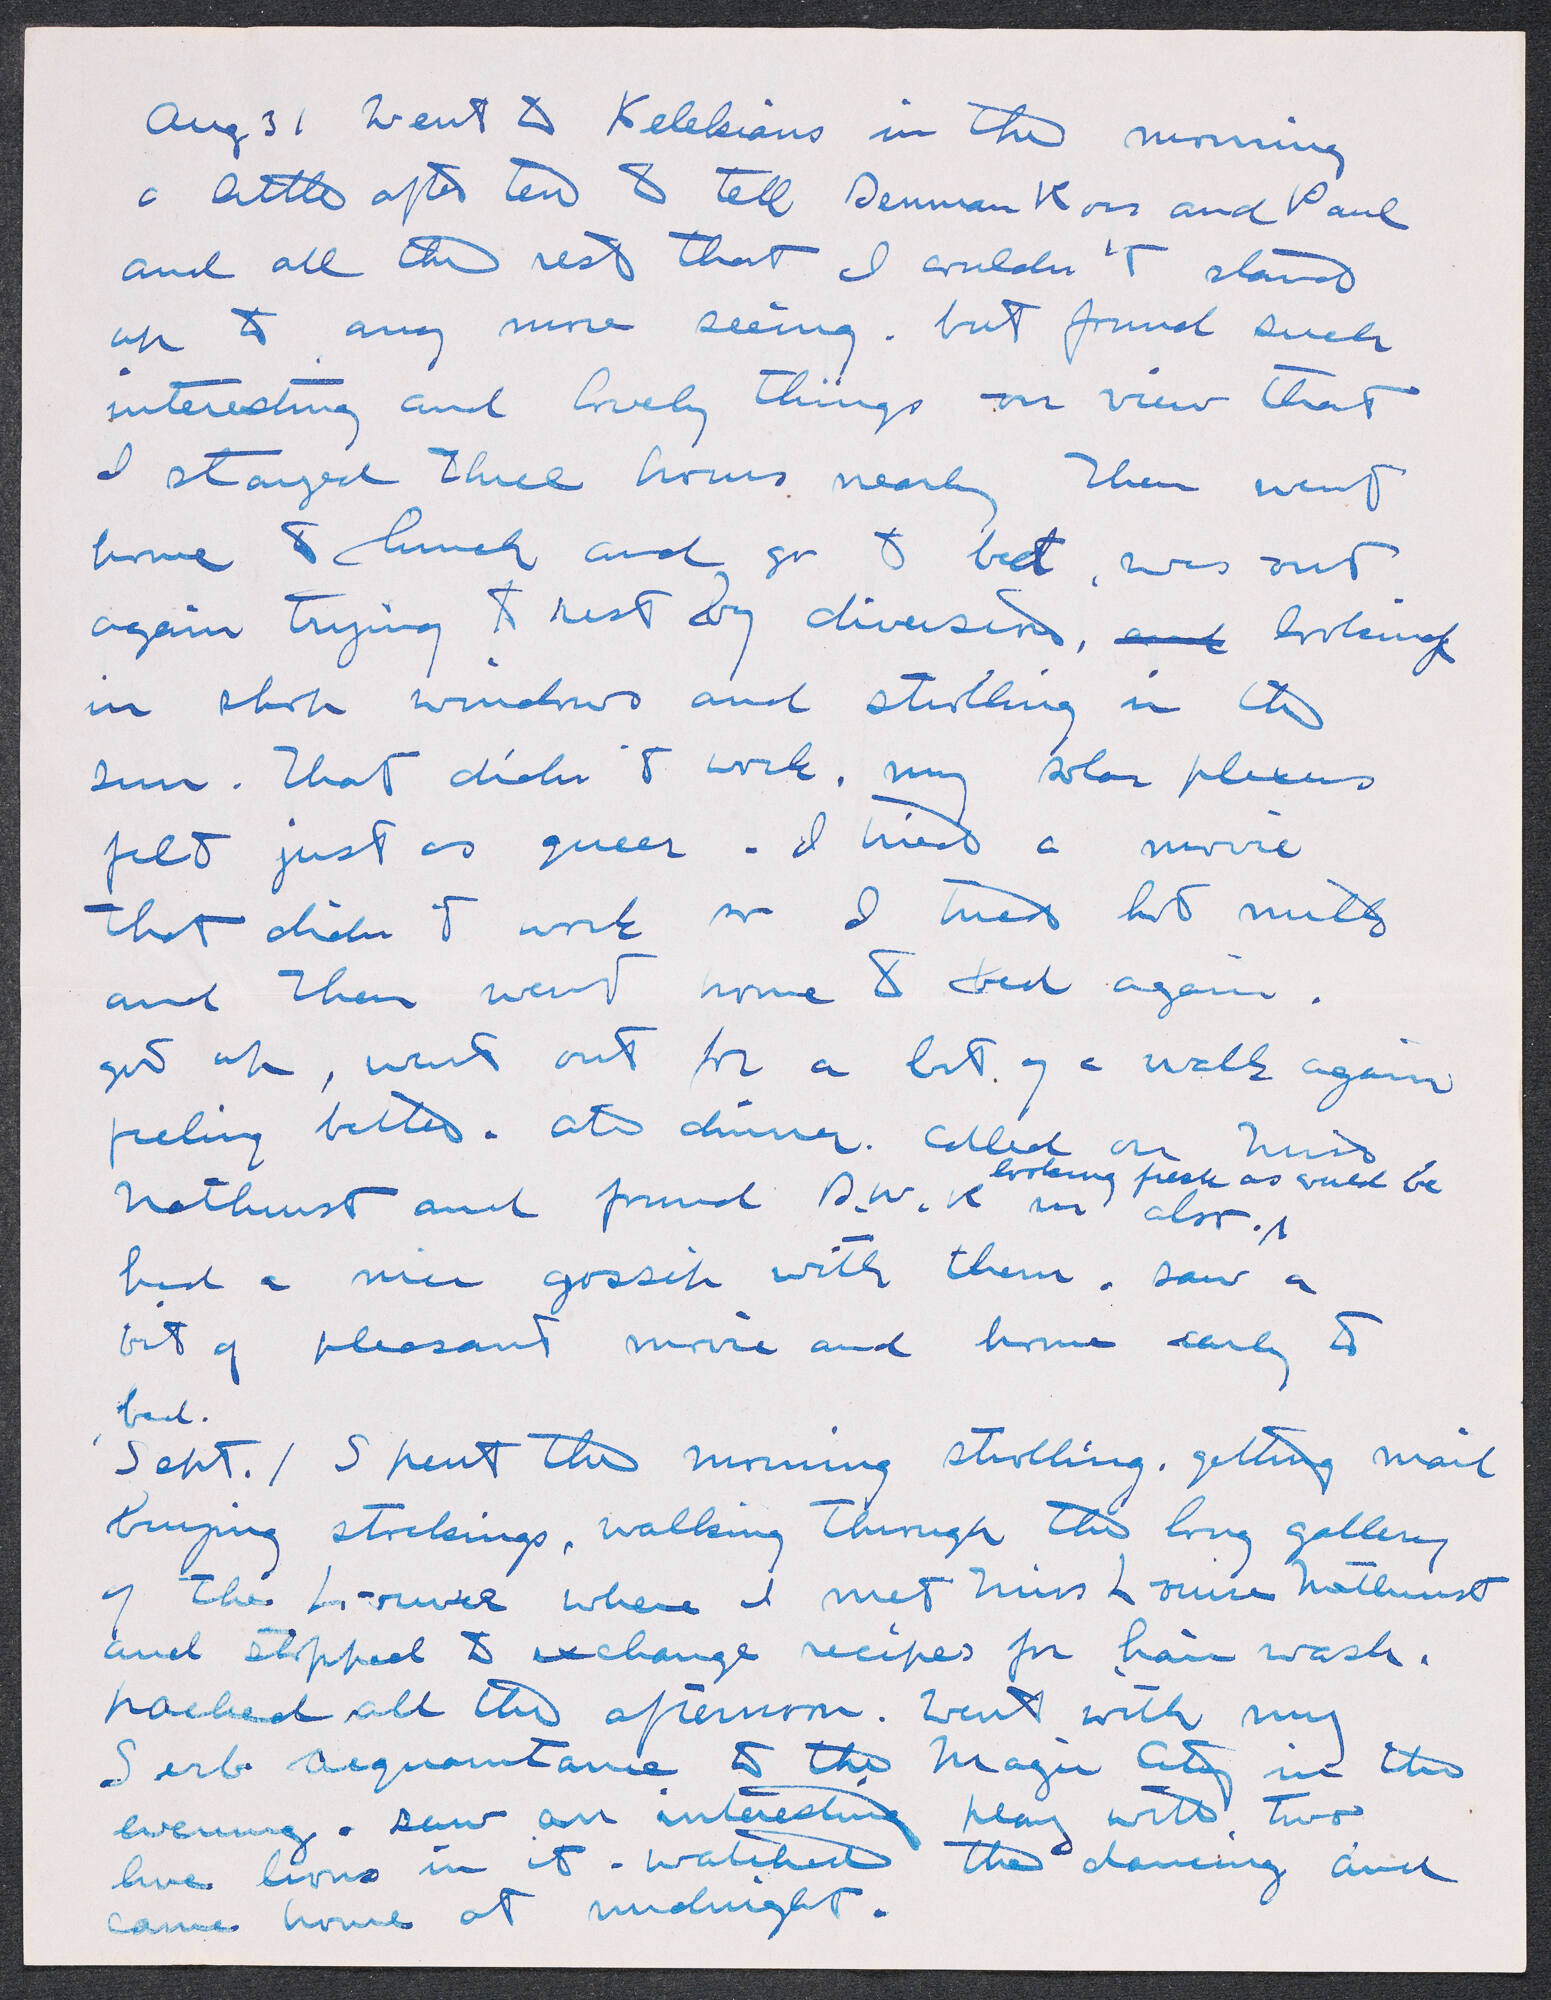 Aug 31 Went to Kelekians in the morning
a little after ten to tell Denman Ross and Paul
and all the rest that I couldn't stand
up to any more seeing. but found such
interesting and lovely things on view that
I stayed three hours nearly Then went
home to lunch and go to bed, was out
again trying to rest by diversion, and looking
in shop windows and strolling in the
sun. That didn't work, my solar plexus
felt just as queer. I tried a movie
that didn't work so I tried hot milk
and then went home to bed again.
got up, went out for a bit of a walk again
feeling better. Ate dinner. Called on Miss
looking fresh as could be
Nathurst and found D.W.R in also. I
had a nice gossip with them. saw a
bit of pleasant movie and home early to
bed.
Sept. 1 Spent the morning strolling. getting mail
buying stockings, walking through the long gallery
of the Louvre where I met Miss Louise Nathurst
and stopped to exchange recipes for hair wash.
packed all the afternoon. Went with my
Serb acquaintance to the Magic City in the
evening. saw an interesting play with two
live lions in it. watched the dancing and
came home at midnight.